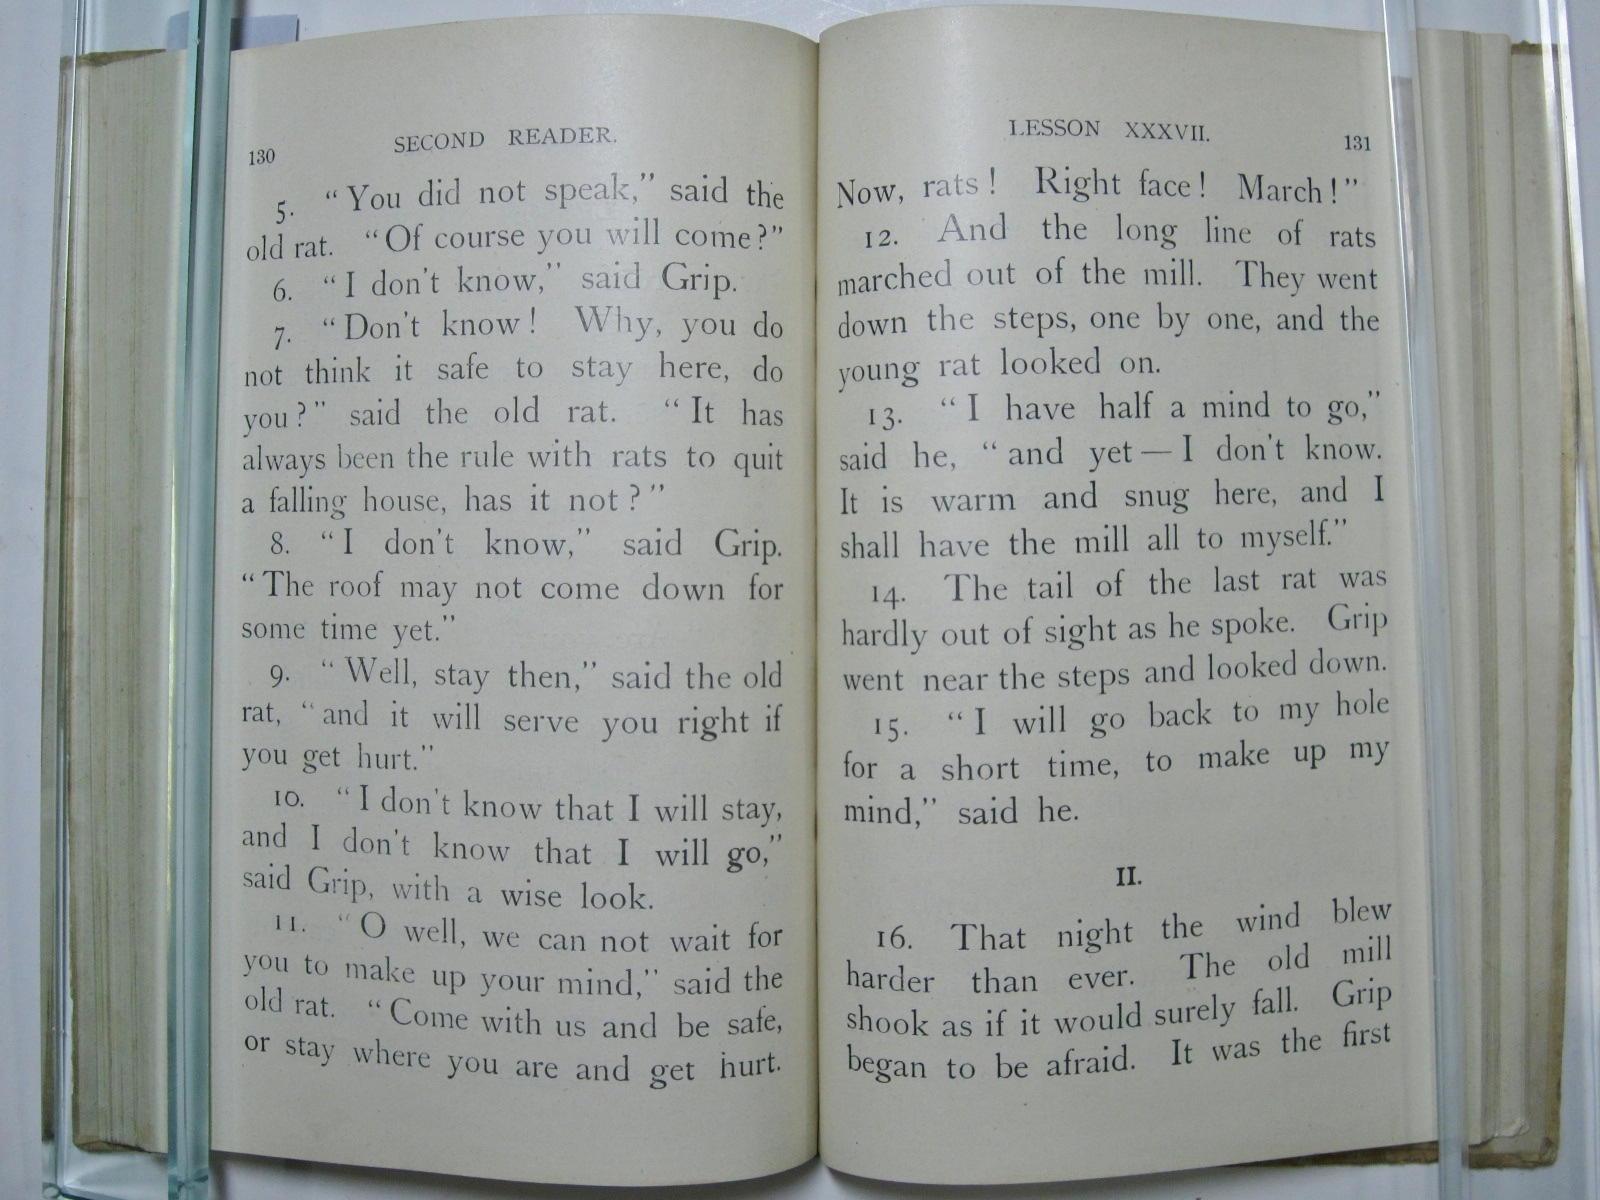 130 SECOND READER.
5. “You did not speak,” said the
old rat. “Of course you will come?”
6. “I don't know,” said Grip.
7. “Don't know! Why, you do
not think it safe to stay here, do
you?” said the old rat. “It has
always been the rule with rats to quit
a falling house, has it not?”
8. “I don't know,” said Grip.
“The roof may not come down for
some time yet.”
9. “Well, stay then,” said the old
rat, “and it will serve you right if
you get hurt.”
10. “I don't know that I will stay,
and I don't know that I will go,”
said Grip, with a wise look.
11. “O well, we can not wait for
you to make up your mind,” said the
old rat. “Come with us and be safe,
or stay where you are and get hurt.
LESSON XXXVII. 131
Now, rats! Right face! March!”
12. And the long line of rats
marched out of the mill. They went
down the steps, one by one, and the
young rat looked on.
13. “I have half a mind to go,”
said he, “and yet — I don't know.
It is warm and snug here, and I
shall have the mill all to myself.”
14. The tail of the last rat was
hardly out of sight as he spoke. Grip
went near the steps and looked down.
15. “I will go back to my hole
for a short time, to make up my
mind,” said he.
II.
16. That night the wind blew
harder than ever. The old mill
shook as if it would surely fall. Grip
began to be afraid. It was the first